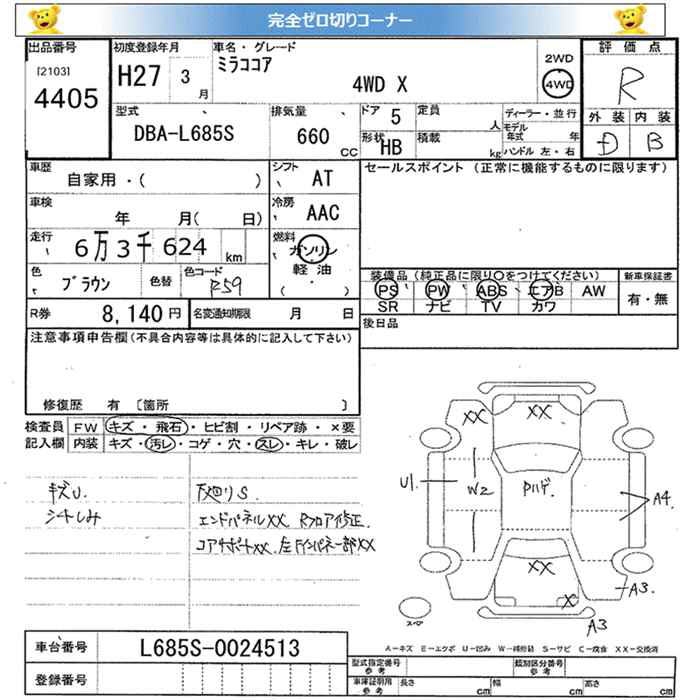 完全ゼロ切りコーナー
出品番号 初度登録年月 車名・グレード 2WD 評価点
[2103] 4405 H27 3月 ミラココア 4WD X 4WD R
型式 排気量 ドア 定員 ディーラー・並行 外装 内装
DBA-L685S 660 CC 5 人 モデル年式 年 D B
形状 HB 積載 kg ハンドル 左・右
車歴 シフト セールスポイント (正常に機能するものに限ります)
自家用・( ) AT
車検 冷房
年 月( 日) AAC
走行 燃料
6万3千624 km ガソリン 軽油 ( )
色 色替 色コード 装備品 (純正品に限り〇をつけてください) 新車保証書
ブラウン R59 PS PW ABS エアB AW 有・無
SR ナビ TV カワ
R券 8,140 円 名変通知期限 月 日 後日品
注意事項申告欄(不具合内容等は具体的に記入して下さい)
修復歴 有 〔箇所 〕
検査員 FW キズ・飛石・ヒビ割・リペア跡・×要
記入欄 内装 キズ・汚レ・コゲ・穴・スレ・キレ・破レ
キズU. 下廻りS
シートしみ エンドパネルXX Rフロア修正.
コアサポートXX 左Fインパネ一部XX
XX XX
U1 W2 Pハゲ A4.
XX
X A3
スペア A3
A-キズ E-エクボ U-凹み W-補修跡 S-サビ C-腐食 XX-交換済
車台番号 L685S-0024513
登録番号
型式指定番号 参考 類別区分番号 参考
車庫証明用 参考 長さ cm 幅 cm 高さ cm